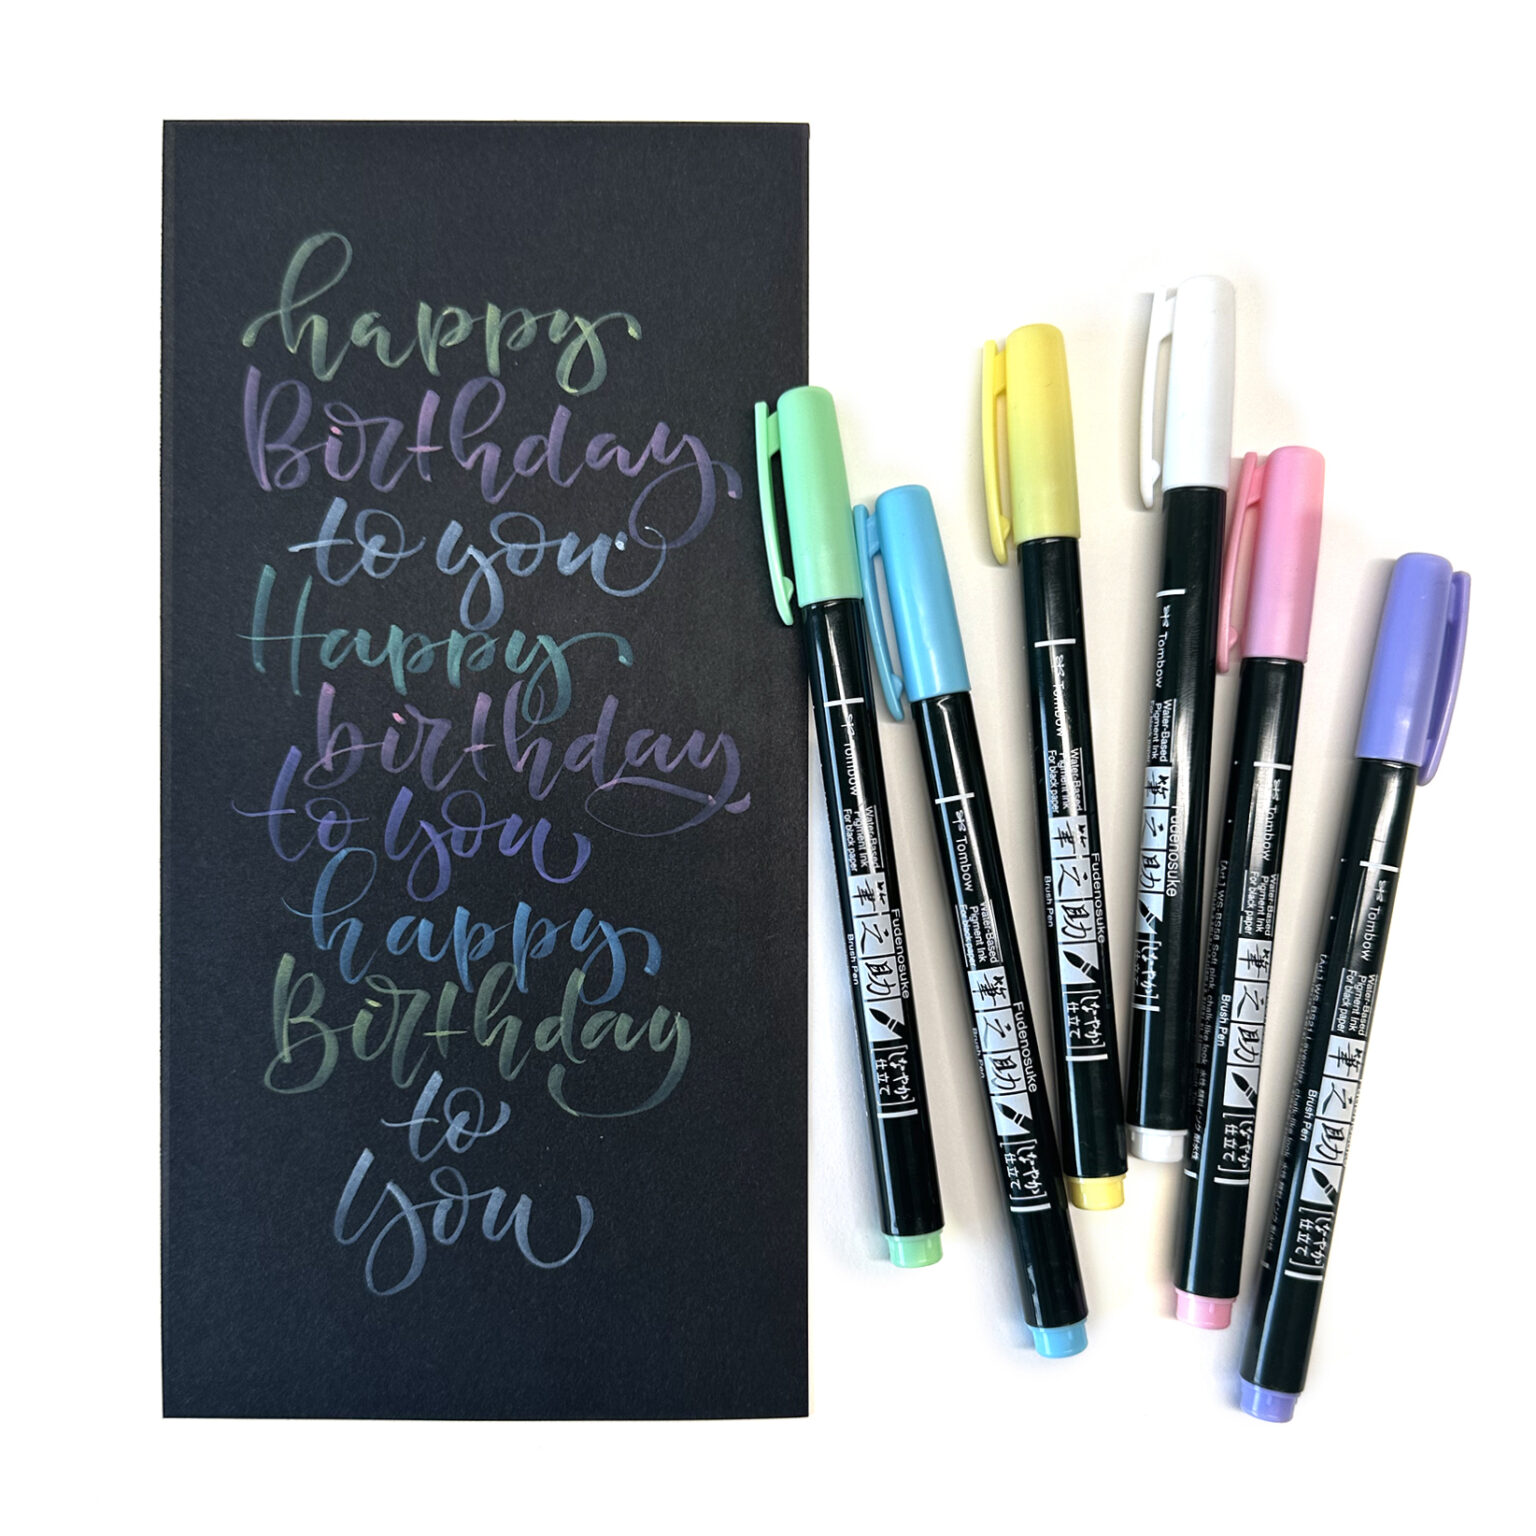 happy
Birthday
to you
Happy
birthday
to you
happy
Birthday
to
you
Tombow
Water-Based
Pigment Ink
For black paper
筆之助
Fudenosuke
Brush Pen
[しなやか仕立て]
Tombow
Water-Based
Pigment Ink
For black paper
筆之助
Fudenosuke
Brush Pen
[しなやか仕立て]
Tombow
Water-Based
Pigment Ink
For black paper
筆之助
Fudenosuke
Brush Pen
[しなやか仕立て]
Tombow
Water-Based
Pigment Ink
筆之助
Fudenosuke
[しなやか
Tombow
Water-Based
Pigment Ink
For black paper
筆之助
Brush Pen
[しなやか仕立て]
Tombow
Water-Based
Pigment Ink
For black paper
筆之助
Brush Pen
[しなやか仕立て]